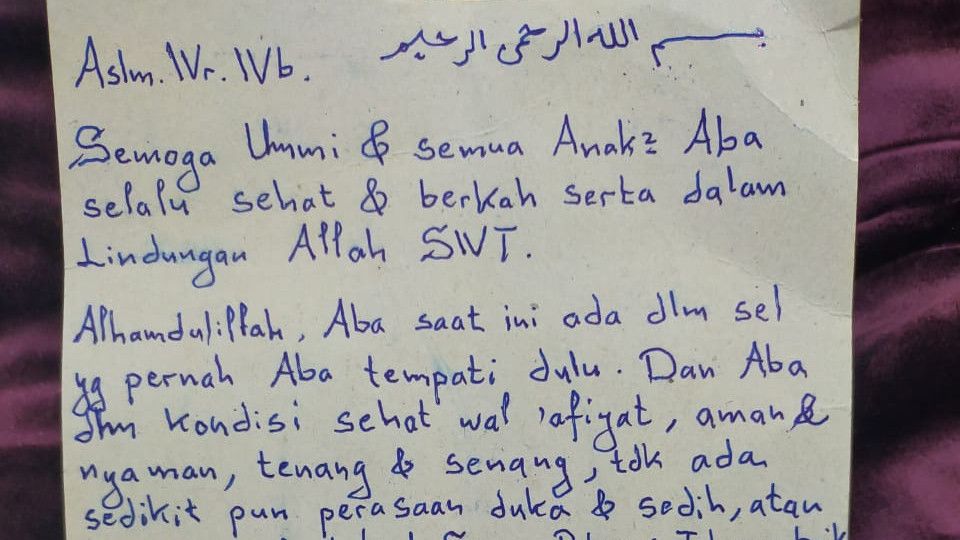 بسم الله الرحمن الرحيم
Aslm. Wr. Wb.
Semoga Ummi & semua Anak2 Aba
selalu sehat & berkah serta dalam
Lindungan Allah SWT.
Alhamdulillah, Aba saat ini ada dlm sel
yg pernah Aba tempati dulu. Dan Aba
dlm kondisi sehat wal 'afiyat, aman &
nyaman, tenang & senang, tdk ada
sedikit pun perasaan duka & sedih, atau